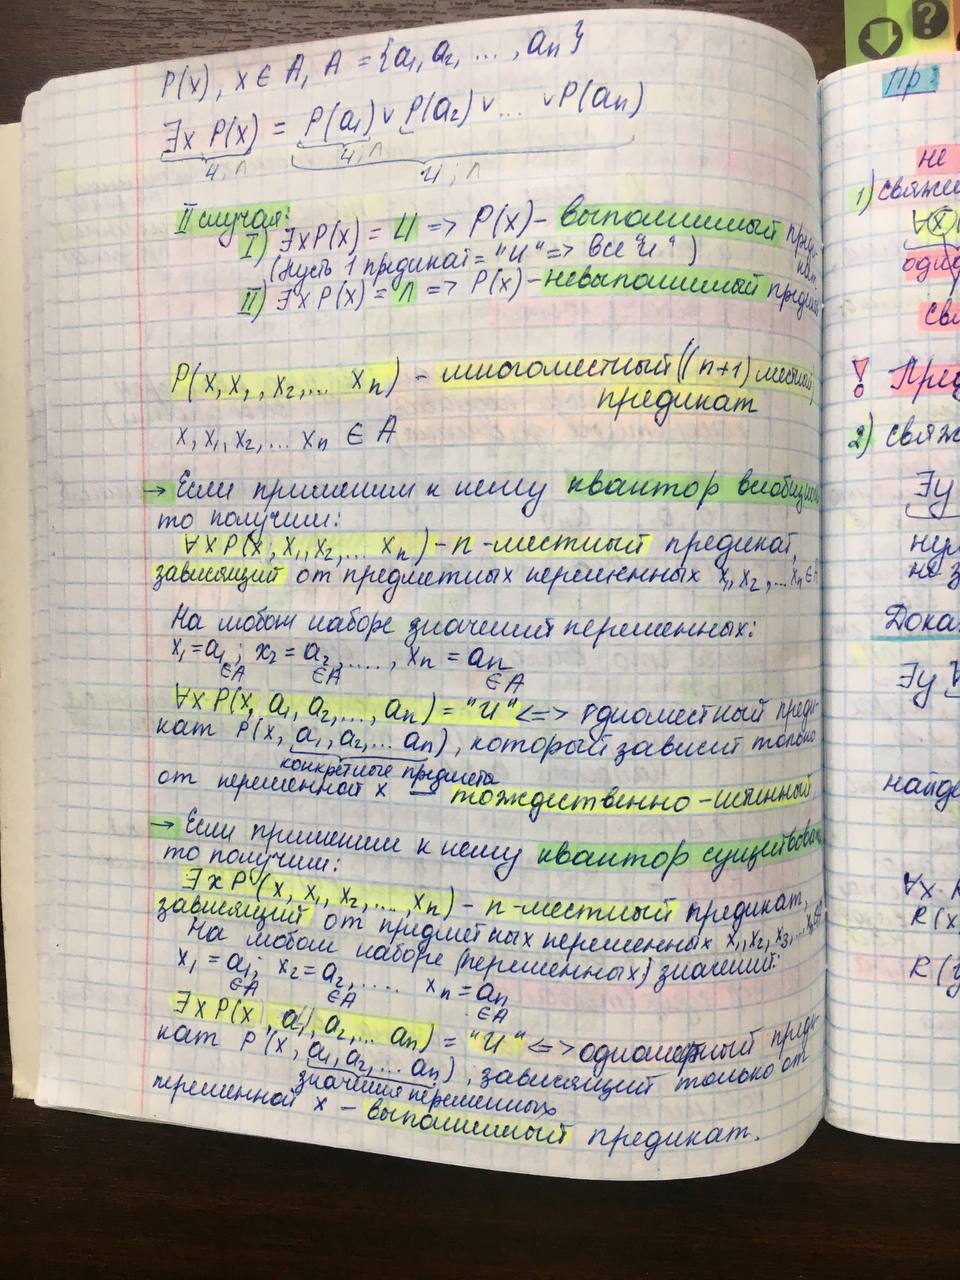 P(x), x ∈ A, A = {a₁, a₂, ..., aₙ}
∃x P(x) = P(a₁) ∨ P(a₂) ∨ ... ∨ P(aₙ)
И, Л И, Л
И, Л
II случая:
I) ∃x P(x) = И => P(x) - выполнимый преди-
(пусть 1 предикат = "И" => все "И") кат
II) ∃x P(x) = Л => P(x) - невыполнимый предик
P(x, x₁, x₂, ... xₙ) - многоместный ((n+1) местный)
предикат
x, x₁, x₂, ... xₙ ∈ A
→ Если применим к нему квантор всеобщно
то получим:
∀x P(x, x₁, x₂, ... xₙ) - n-местный предикат,
зависящий от предметных переменных x₁, x₂, ... xₙ ∈ A
На любом наборе значений переменных:
x₁ = a₁; x₂ = a₂, ...., xₙ = aₙ
∈A ∈A ∈A
∀x P(x, a₁, a₂, ..., aₙ) = "И" <=> одноместный преди-
кат P(x, a₁, a₂, ... aₙ), который зависит только
конкретные предметы
от переменной x - тождественно-истинный.
→ Если применим к нему квантор существован
то получим:
∃x P(x, x₁, x₂, ..., xₙ) - n-местный предикат,
зависящий от предметных переменных x₁, x₂, x₃, ...
На любом наборе (переменных) значений:
x₁ = a₁; x₂ = a₂, .... xₙ = aₙ
∈A ∈A ∈A
∃x P(x, a₁, a₂, ... aₙ) = "И" <=> одноместный преди-
кат P(x, a₁, a₂, ... aₙ), зависящий только от
значения переменных
переменной x - выполнимый предикат.
Пр:
не
1) свяже
∀(x)
одно
свя
! Пред
2) свяж
∃y
нул
не з
Дока
∃y ∀
найд
∀x
R(x
R(y